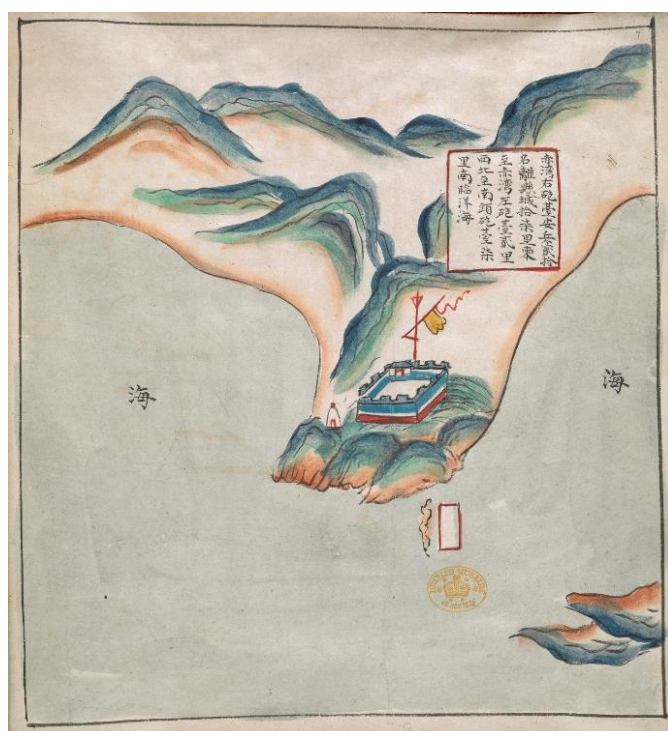 赤灣右砲臺安兵貳拾
名離縣城拾柒里東
至赤灣左砲臺貳里
西北至南頭砲臺柒
里南臨洋海
海
海
7